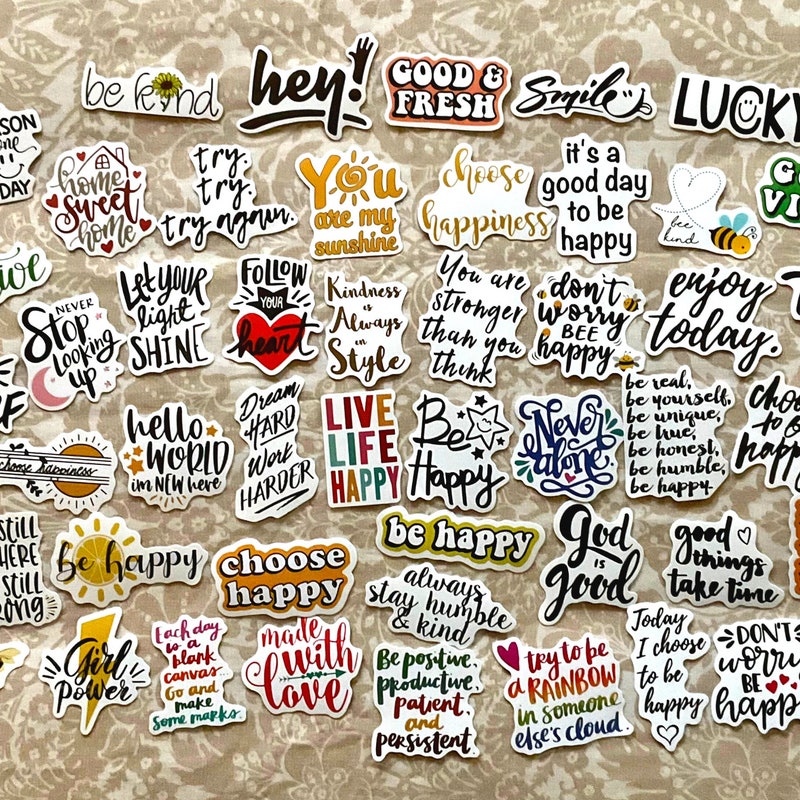 be kind
hey!
GOOD &
FRESH
Smile
LUCKY
DAY
home
sweet
home
try.
try.
try again.
You
are my
sunshine
choose
happiness
it's a
good day
to be
happy
bee
kind
NEVER
Stop
Looking
up
LET YOUR
light
SHINE
FOLLOW
YOUR
heart
Kindness
is
Always
in
Style
You are
stronger
than you
think
don't
worry
BEE
happy
enjoy
today.
choose happiness
hello
WORLD
im NEW here
Dream
HARD
Work
HARDER
LIVE
LIFE
HAPPY
Be
Happy
Never
alone.
be real,
be yourself,
be unique,
be true,
be honest,
be humble,
be happy.
STILL
HERE
STILL
be happy
choose
happy
be happy
always
stay humble
& kind
God
IS
good
good
things
take time
Girl
Power
Each day
is a
blank
canvas...
Go and
make
some marks.
made
with
love
Be positive,
productive,
patient,
and
persistent.
try to be
a RAINBOW
in someone
else's cloud.
Today
I choose
to be
happy
DON'T
worry
BE
happy